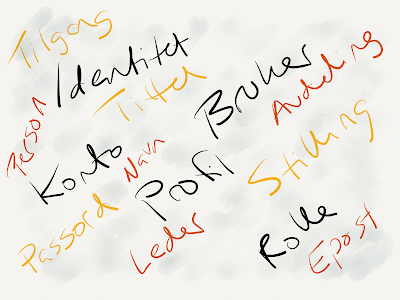 Tilgang
Identitet
Tittel
Bruker
Avdeling
Person
Konto
Navn
Profil
Stilling
Passord
Leder
Rolle
Epost